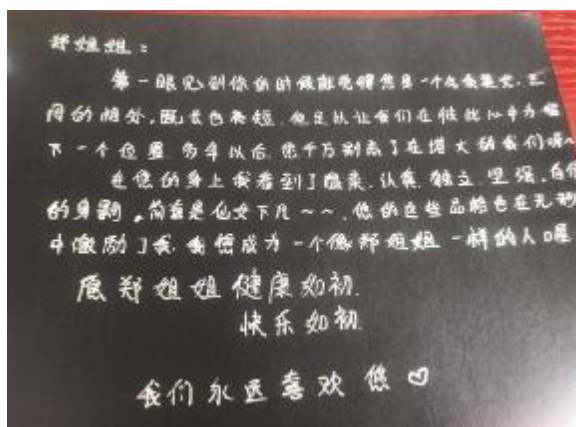 郑姐姐：
第一眼见到你的时候就觉得您是一个气质美女，三
间的相处，既长也亦短，但足以让我们在彼此心中为留
下一个位置，多年以后，您千万别忘了在塔大的我们呀~
在您的身上我看到了温柔、认真、独立、坚强、自信
的身影，简直是仙女下凡~~，您的这些品格也在无形
中激励了我，我想成为一个像郑姐姐一样的人喔
愿郑姐姐健康如初，
快乐如初，
我们永远喜欢您♡